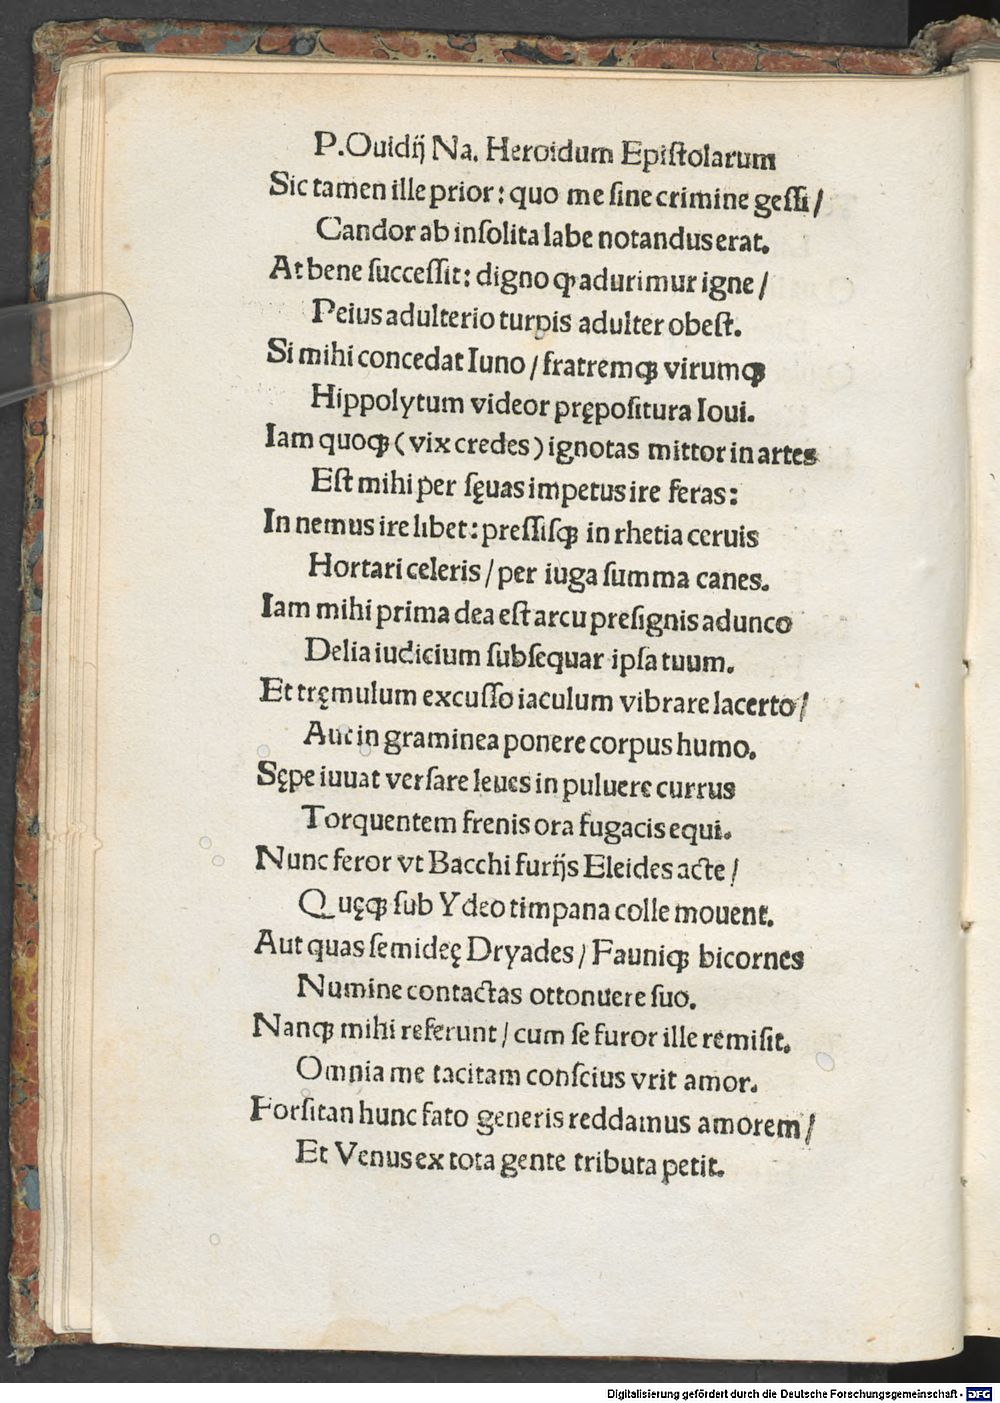 P.Ouidij Na. Heroidum Epiſtolarum
Sic tamen ille prior: quo me ſine crimine geſſi /
Candor ab inſolita labe notandus erat.
At bene ſucceſſit: digno ꝙ adurimur igne /
Peius adulterio turpis adulter obeſt.
Si mihi concedat Iuno / fratremqꝫ virumqꝫ
Hippolytum videor prępoſitura Ioui.
Iam quoqꝫ (vix credes) ignotas mittor in artes
Eſt mihi per ſęuas impetus ire feras:
In nemus ire libet: preſſiſqꝫ in rhetia ceruis
Hortari celeris / per iuga ſumma canes.
Iam mihi prima dea eſt arcu preſignis adunco
Delia iudicium ſubſequar ipſa tuum.
Et tręmulum excuſſo iaculum vibrare lacerto /
Aut in graminea ponere corpus humo.
Sępe iuuat verſare leues in puluere currus
Torquentem frenis ora fugacis equi.
Nunc feror vt Bacchi furijs Eleides acte /
Quęqꝫ ſub Ydeo timpana colle mouent.
Aut quas ſemideę Dryades / Fauniqꝫ bicornes
Numine contactas ottonuere ſuo.
Nanqꝫ mihi referunt / cum ſe furor ille remiſit.
Omnia me tacitam conſcius vrit amor.
Forſitan hunc fato generis reddamus amorem /
Et Venus ex tota gente tributa petit.
Digitalisierung gefördert durch die Deutsche Forschungsgemeinschaft - DFG